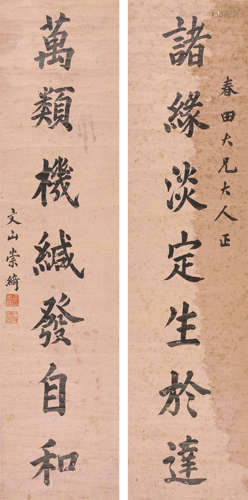 春田大兄大人正
諸緣淡定生於達
萬類機緘發自和
文山崇綺